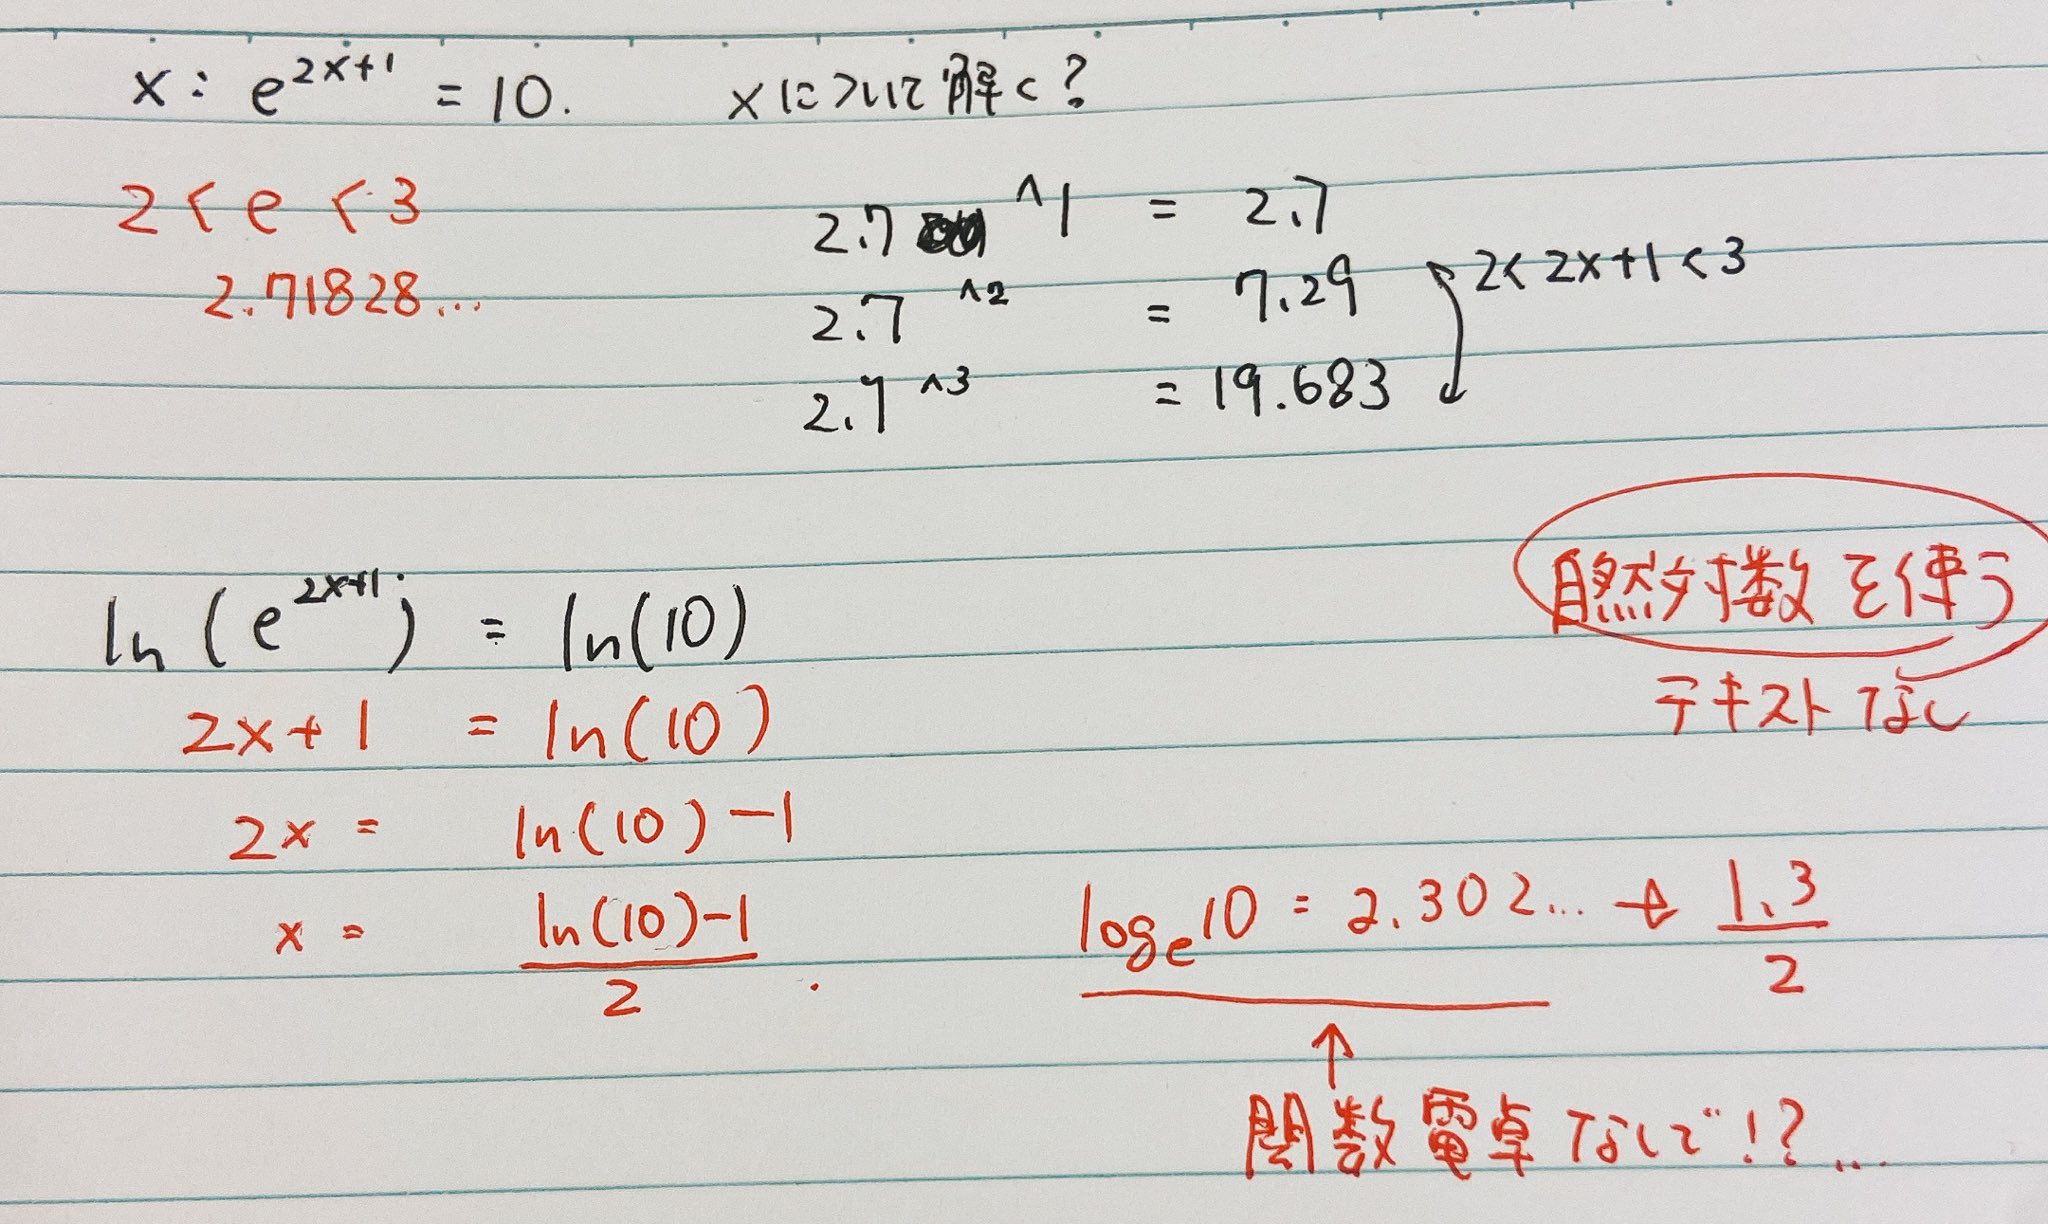 x: e^{2x+1} = 10. xについて解く?
2 < e < 3
2.71828...
2.7 ^1 = 2.7
2.7 ^2 = 7.29
2.7 ^3 = 19.683
2 < 2x+1 < 3
自然対数を使う
テキストなし
ln (e^{2x+1}) = ln(10)
2x+1 = ln(10)
2x = ln(10)-1
x = (ln(10)-1)/2.
log_e 10 = 2.302... → 1.3/2
↑
関数電卓なしで!?...